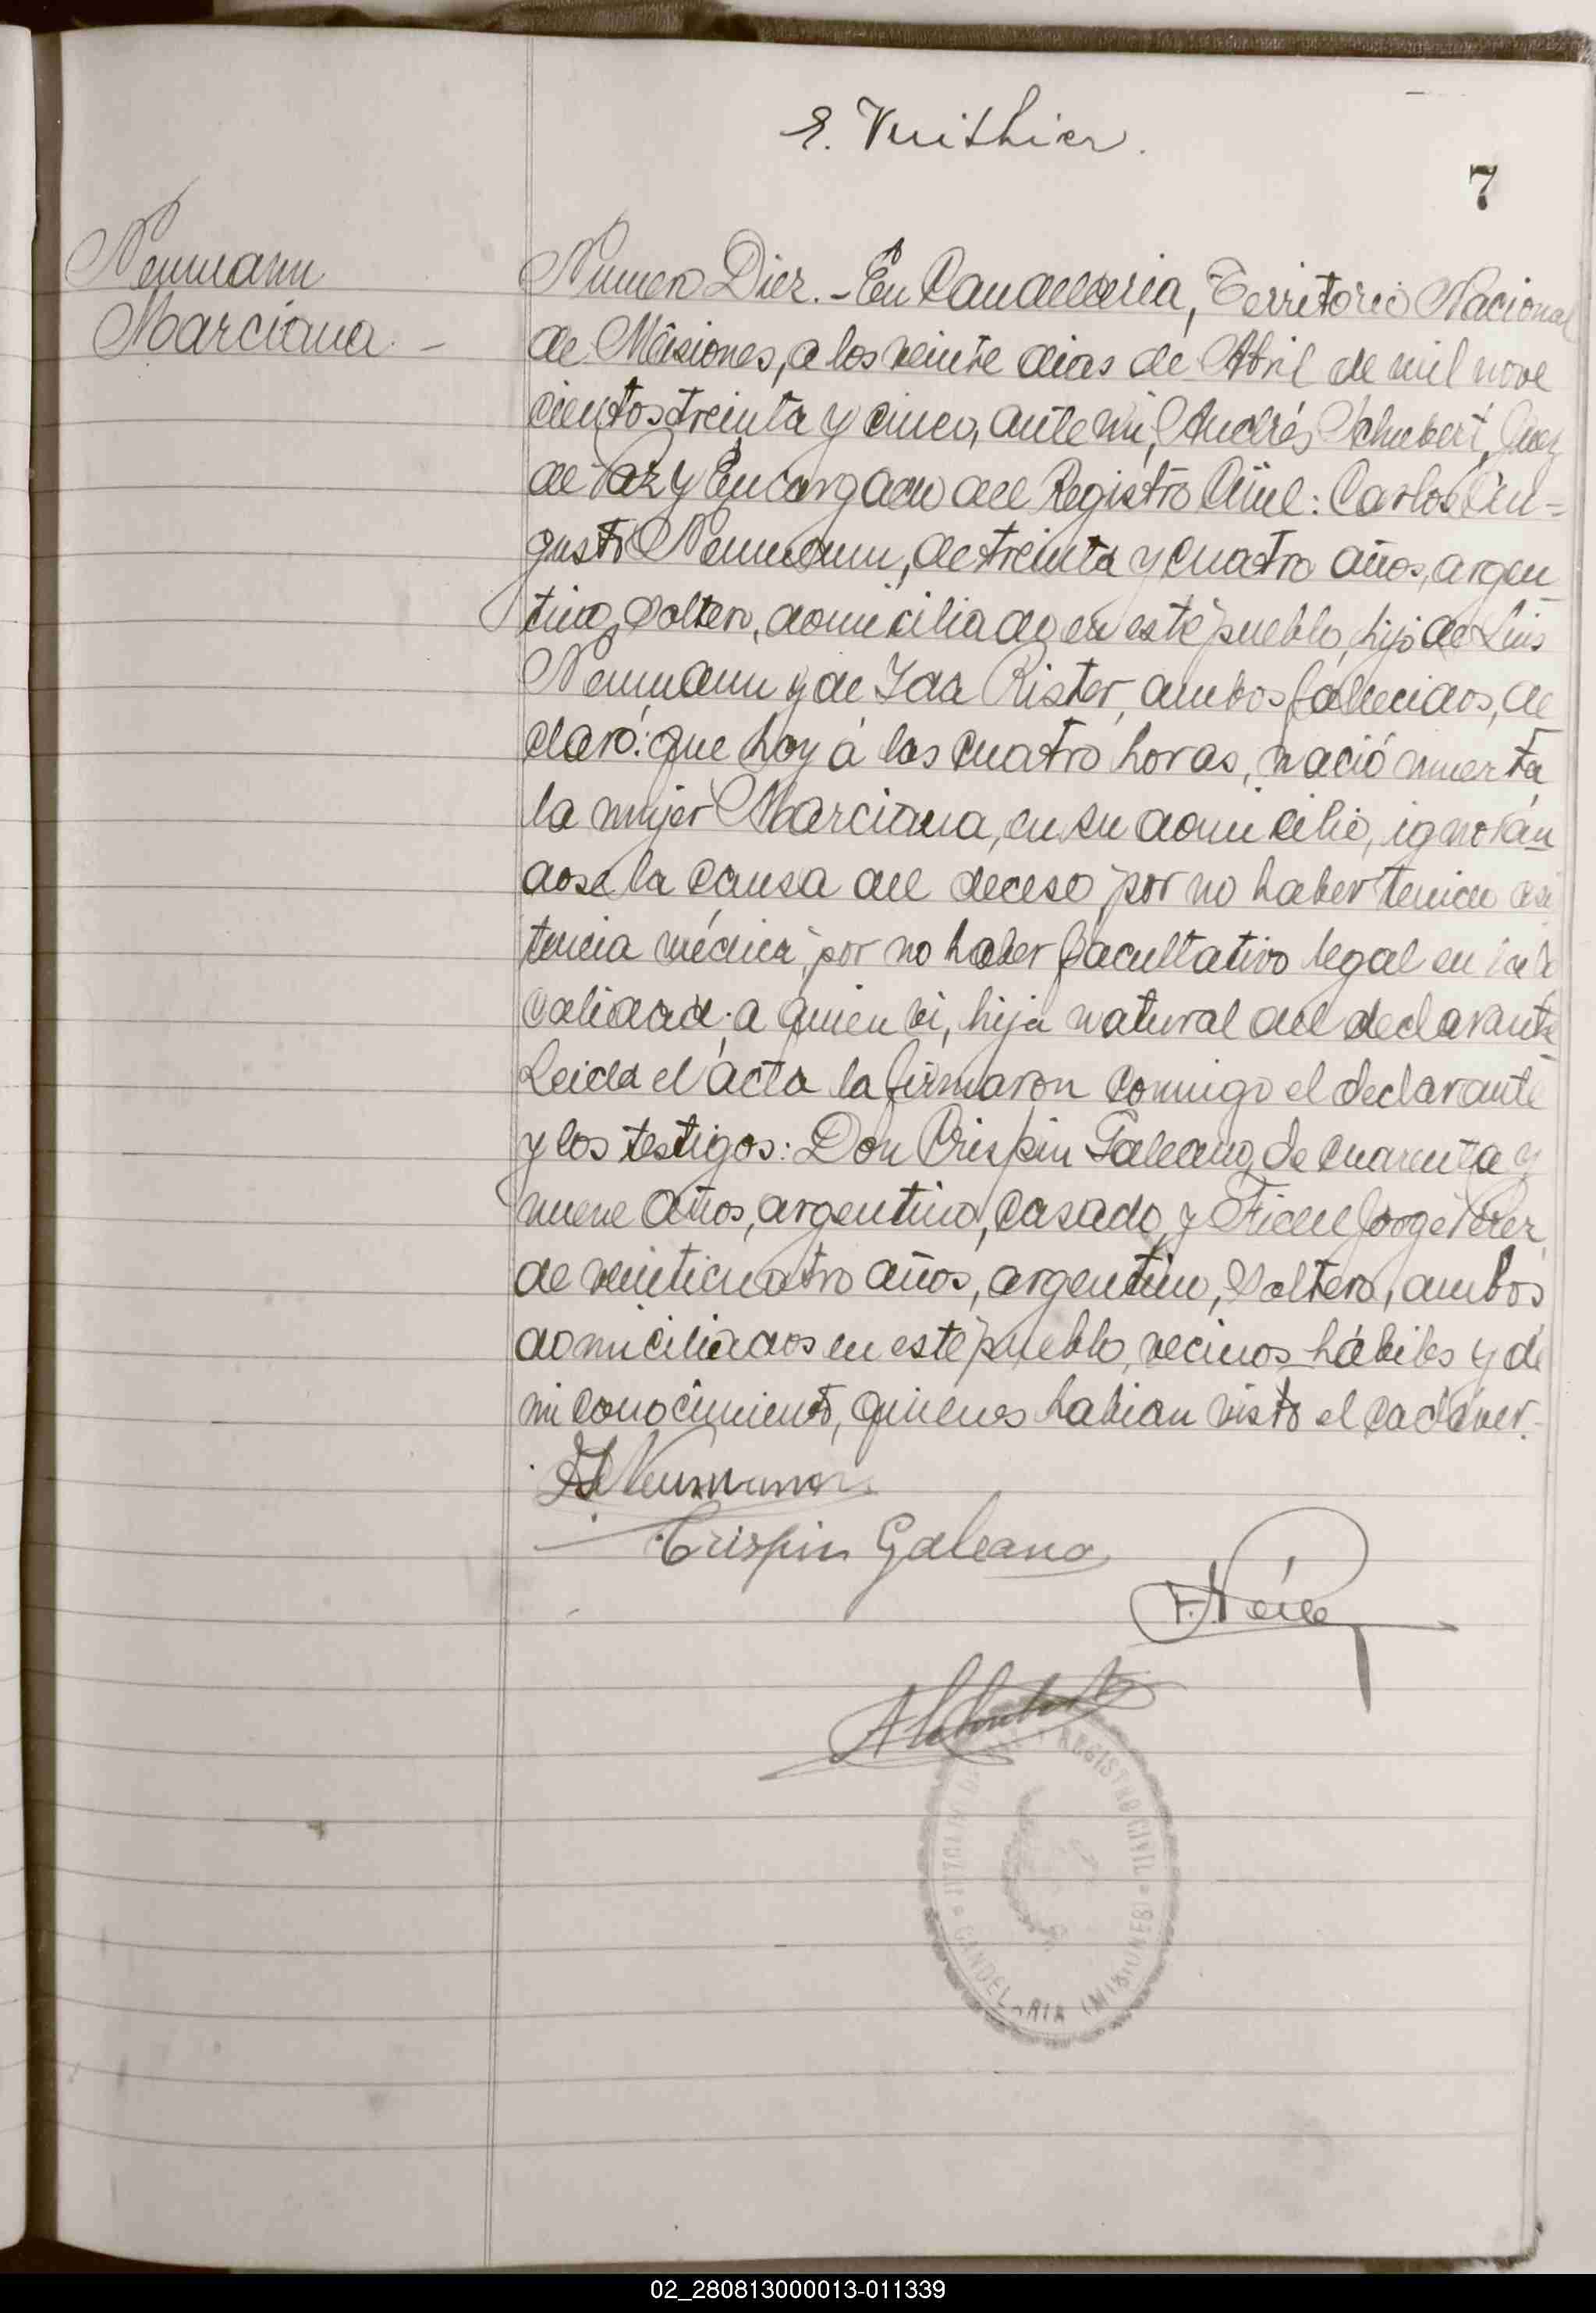 E. Vuithier.
7
Neumann
Marciana. -
Número Diez. - En Candelaria, Territorio Nacional
de Misiones, a los veinte dias de Abril de mil nove
cientos treinta y cinco, ante mi, Andrés Schubert, Juez
de Paz y Encargado del Registro Civil: Carlos Au=
gusto Neumann, de treinta y cuatro años, argen
tino, soltero, domiciliado en este pueblo, hijo de Luis
Neumann y de Ida Rister, ambos fallecidos, de
claró: que hoy á las cuatro horas, nació muerta
la mujer Marciana, en su domicilio, ignorán
dose la causa del deceso por no haber tenido asis
tencia médica, por no haber facultativo legal en la lo
calidad; a quien vi, hija natural del declarante
Leida el acta la firmaron conmigo el declarante
y los testigos: Don Crispin Galeano, de cuarenta y
nueve años, argentino, casado, y Fidel Jorge Perez
de veinticuatro años, argentino, soltero, ambos
domiciliados en este pueblo, vecinos hábiles y de
mi conocimiento, quienes habian visto el cadáver.-
Neumann
Crispin Galeano
F. Pérez
A Schubert
REGISTRO CIVIL
CANDELARIA (MISIONES)
02_280813000013-011339